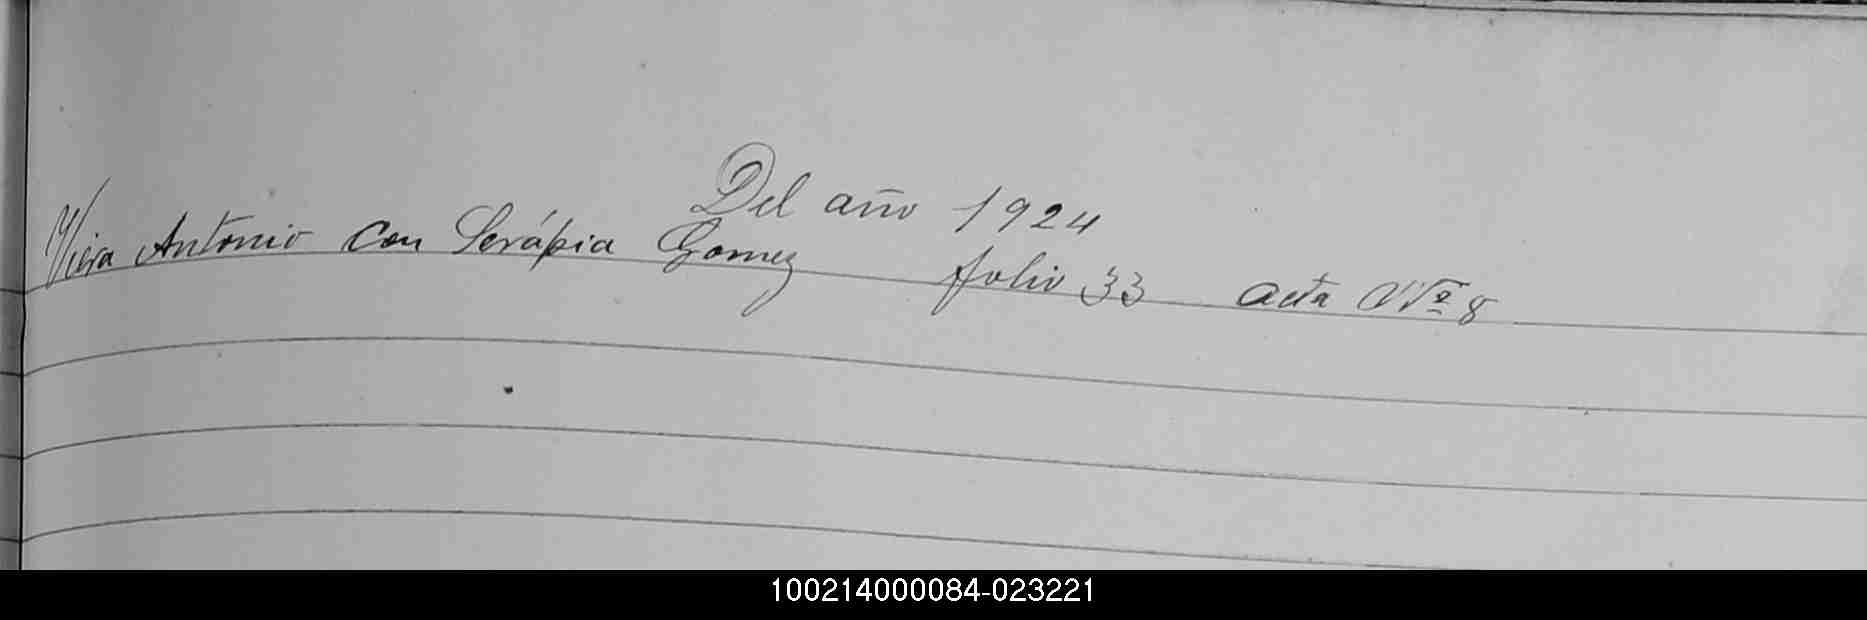 Del año 1924
Viera Antonio con Serápia Gomez folio 33 acta Nº 8
100214000084-023221